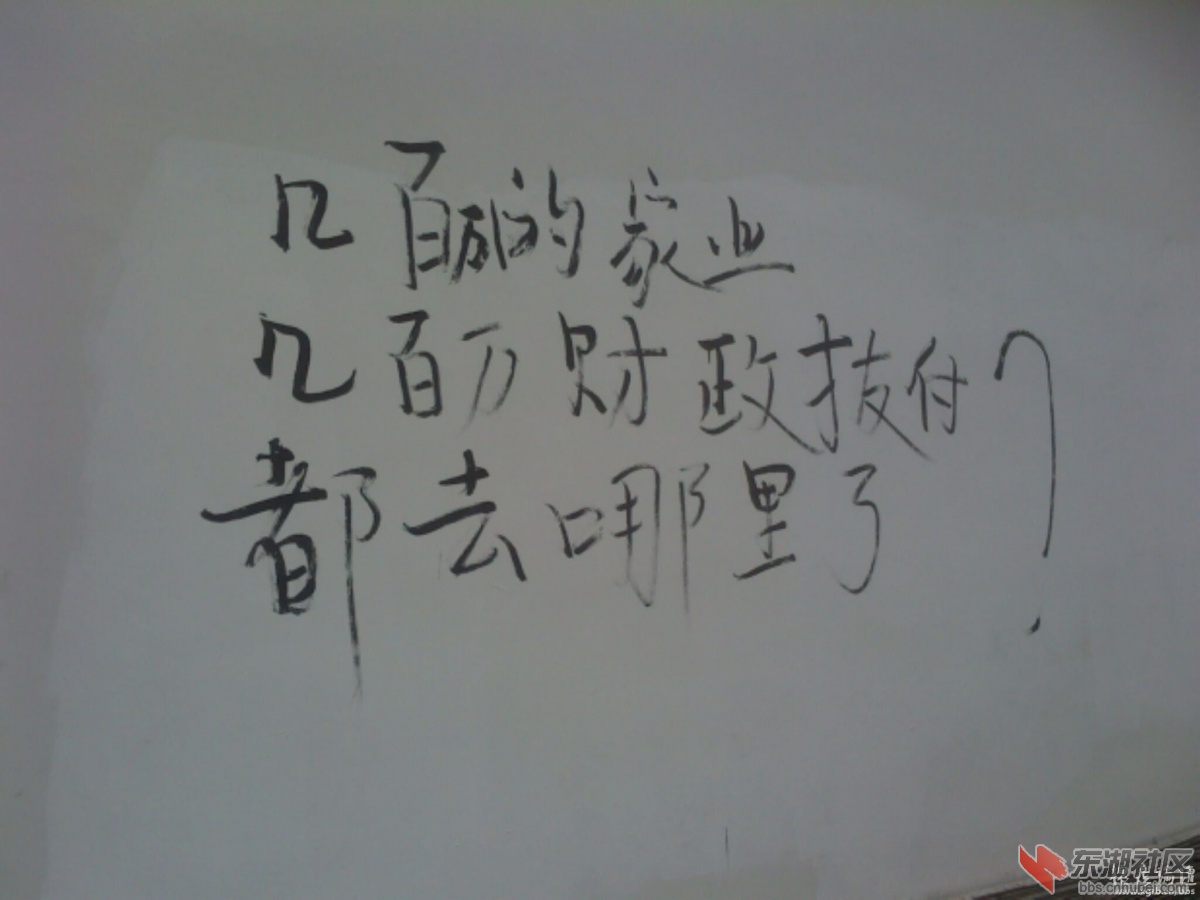 几百万的家业
几百万财政拨付?
都去哪里了
东湖社区
bbs.cnhubei.com